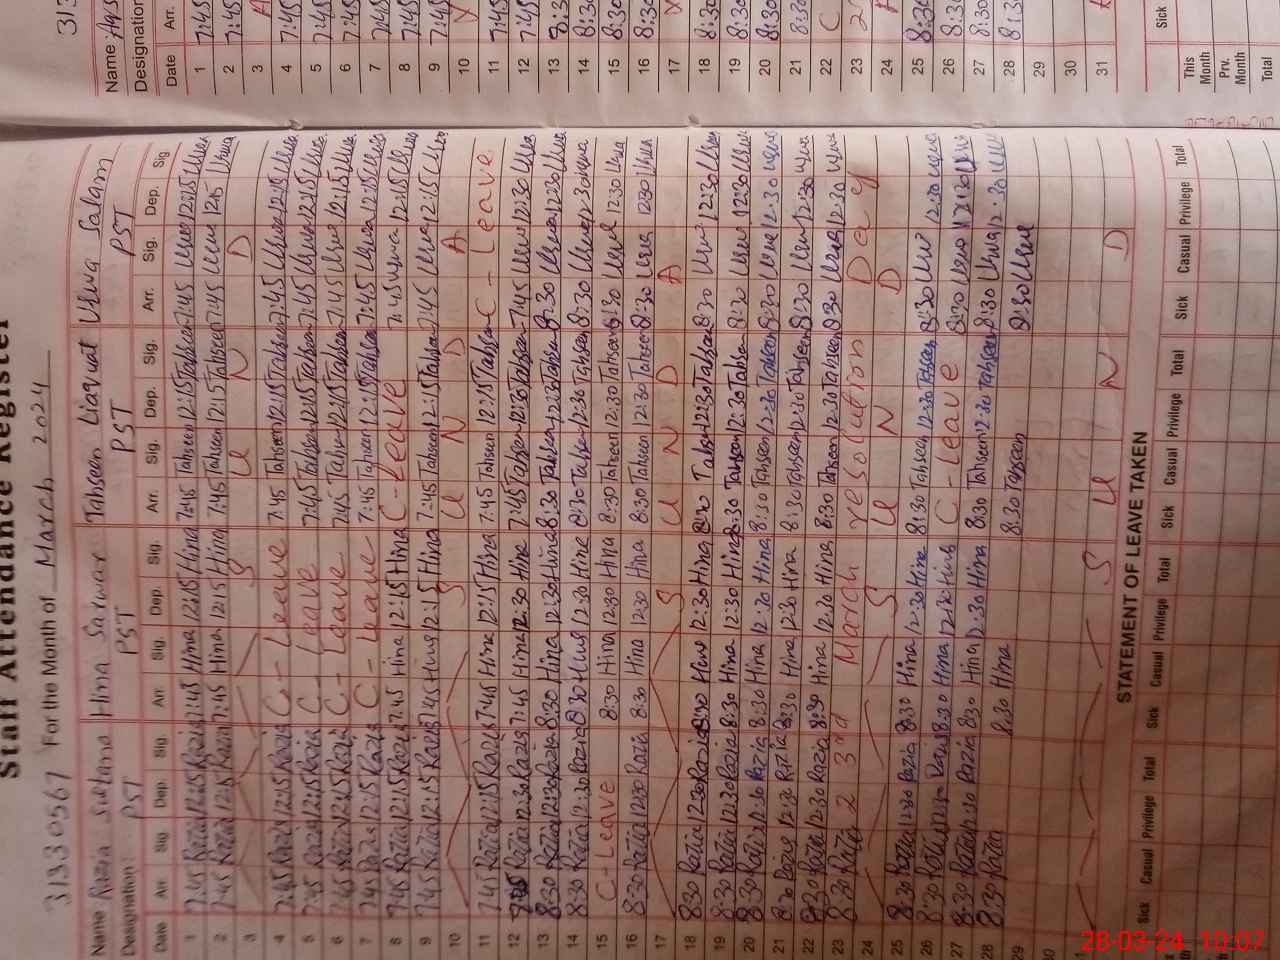 Staff Attendance Register
31330567 For the Month of March 2024
Name Razia Sultana Hina Sarwar Tahseen Liaquat Uswa Salam
Designation: PST PST PST PST
Date Arr. Sig. Dep. Sig. Arr. Sig. Dep. Sig. Arr. Sig. Dep. Sig. Arr. Sig. Dep. Sig.
1 7:45 Razia 12:15 Razia 7:45 Hina 12:15 Hina 7:45 Tahseen 12:15 Tahseen 7:45 Uswa 12:15 Uswa
2 7:45 Razia 12:15 Razia 7:45 Hina 12:15 Hina 7:45 Tahseen 12:15 Tahseen 7:45 Uswa Uswa
3 S U N D A
4 7:45 Razia 12:15 Razia C - Leave 7:45 Tahseen 12:15 Tahseen 7:45 Uswa 12:15 Uswa
5 7:45 Razia 12:15 Razia C - Leave 7:45 Tahseen 12:15 Tahseen 7:45 Uswa 12:15 Uswa
6 7:45 Razia 12:15 Razia C - Leave 7:45 Tahseen 12:15 Tahseen 7:45 Uswa 12:15 Uswa
7 7:45 Razia 12:15 Razia C - Leave 7:45 Tahseen 12:15 Tahseen 7:45 Uswa 12:15 Uswa
8 7:45 Razia 12:15 Razia 7:45 Hina 12:15 Hina C - Leave 7:45 Uswa 12:15 Uswa
9 7:45 Razia 12:15 Razia 7:45 Hina 12:15 Hina 7:45 Tahseen 12:15 Tahseen 7:45 Uswa 12:15 Uswa
10 S U N D A Y
11 7:45 Razia 12:15 Razia 7:45 Hina 12:15 Hina 7:45 Tahseen 12:15 Tahseen C - Leave
12 Razia 12:30 Razia 7:45 Hina 12:30 Hina 7:45 Tahseen 12:30 Tahseen 7:45 Uswa 12:30 Uswa
13 8:30 Razia 12:30 Razia 8:30 Hina 12:30 Hina 8:30 Tahseen 12:30 Tahseen 8:30 Uswa 12:30 Uswa
14 8:30 Razia 12:30 Razia 8:30 Hina 12:30 Hina 8:30 Tahseen 12:30 Tahseen 8:30 Uswa 12:30 Uswa
15 C - Leave 8:30 Hina 12:30 Hina 8:30 Tahseen 12:30 Tahseen 8:30 Uswa 12:30 Uswa
16 8:30 Razia 12:30 Razia 8:30 Hina 12:30 Hina 8:30 Tahseen 12:30 Tahseen 8:30 Uswa 12:30 Uswa
17 S U N D A Y
18 8:30 Razia 12:30 Razia 8:30 Hina 12:30 Hina 8:30 Tahseen 12:30 Tahseen 8:30 Uswa 12:30 Uswa
19 8:30 Razia 12:30 Razia 8:30 Hina 12:30 Hina 8:30 Tahseen 12:30 Tahseen 8:30 Uswa 12:30 Uswa
20 8:30 Razia 12:30 Razia 8:30 Hina 12:30 Hina 8:30 Tahseen 12:30 Tahseen 8:30 Uswa 12:30 Uswa
21 8:30 Razia 12:30 Razia 8:30 Hina 12:30 Hina 8:30 Tahseen 12:30 Tahseen 8:30 Uswa 12:30 Uswa
22 8:30 Razia 12:30 Razia 8:30 Hina 12:30 Hina 8:30 Tahseen 12:30 Tahseen 8:30 Uswa 12:30 Uswa
23 8:30 Razia 23rd March resolution Day
24 S U N D
25 8:30 Razia 12:30 Razia 8:30 Hina 12:30 Hina 8:30 Tahseen 12:30 Tahseen 8:30 Uswa 12:30 Uswa
26 8:30 Razia Razia 8:30 Hina 12:30 Hina C - Leave 8:30 Uswa 12:30 Uswa
27 8:30 Razia 12:30 Razia 8:30 Hina 12:30 Hina 8:30 Tahseen 12:30 Tahseen 8:30 Uswa 12:30 Uswa
28 8:30 Razia 8:30 Hina 8:30 Tahseen 8:30 Uswa
29
30
31 S U N D
STATEMENT OF LEAVE TAKEN
Sick Casual Privilege Total Sick Casual Privilege Total Sick Casual Privilege Total Sick Casual Privilege Total
313
Name
Designation
Date Arr.
1 7:45
2 7:45
3
4 7:45
5 7:45
6 7:45
7 7:45
8 7:45
9 7:45
10 Y
11 7:45
12 7:45
13 8:30
14 8:30
15 8:30
16 8:30
17 Y
18 8:30
19 8:30
20 8:30
21 8:30
22 C
23 2
24
25 8:30
26 8:30
27 8:30
28 8:30
29
30
31
Sick
This Month
Prv. Month
Total
28-03-24 10:07